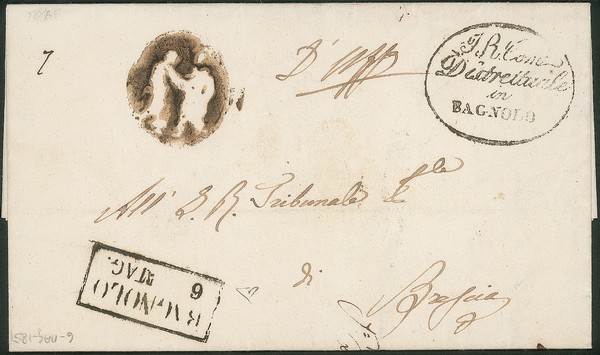 7
D'Uff
I. R. Com.
Distrettuale
in
BAGNOLO
All' I. R. Tribunale P.le
di
Brescia
BAGNOLO
MAG.
6